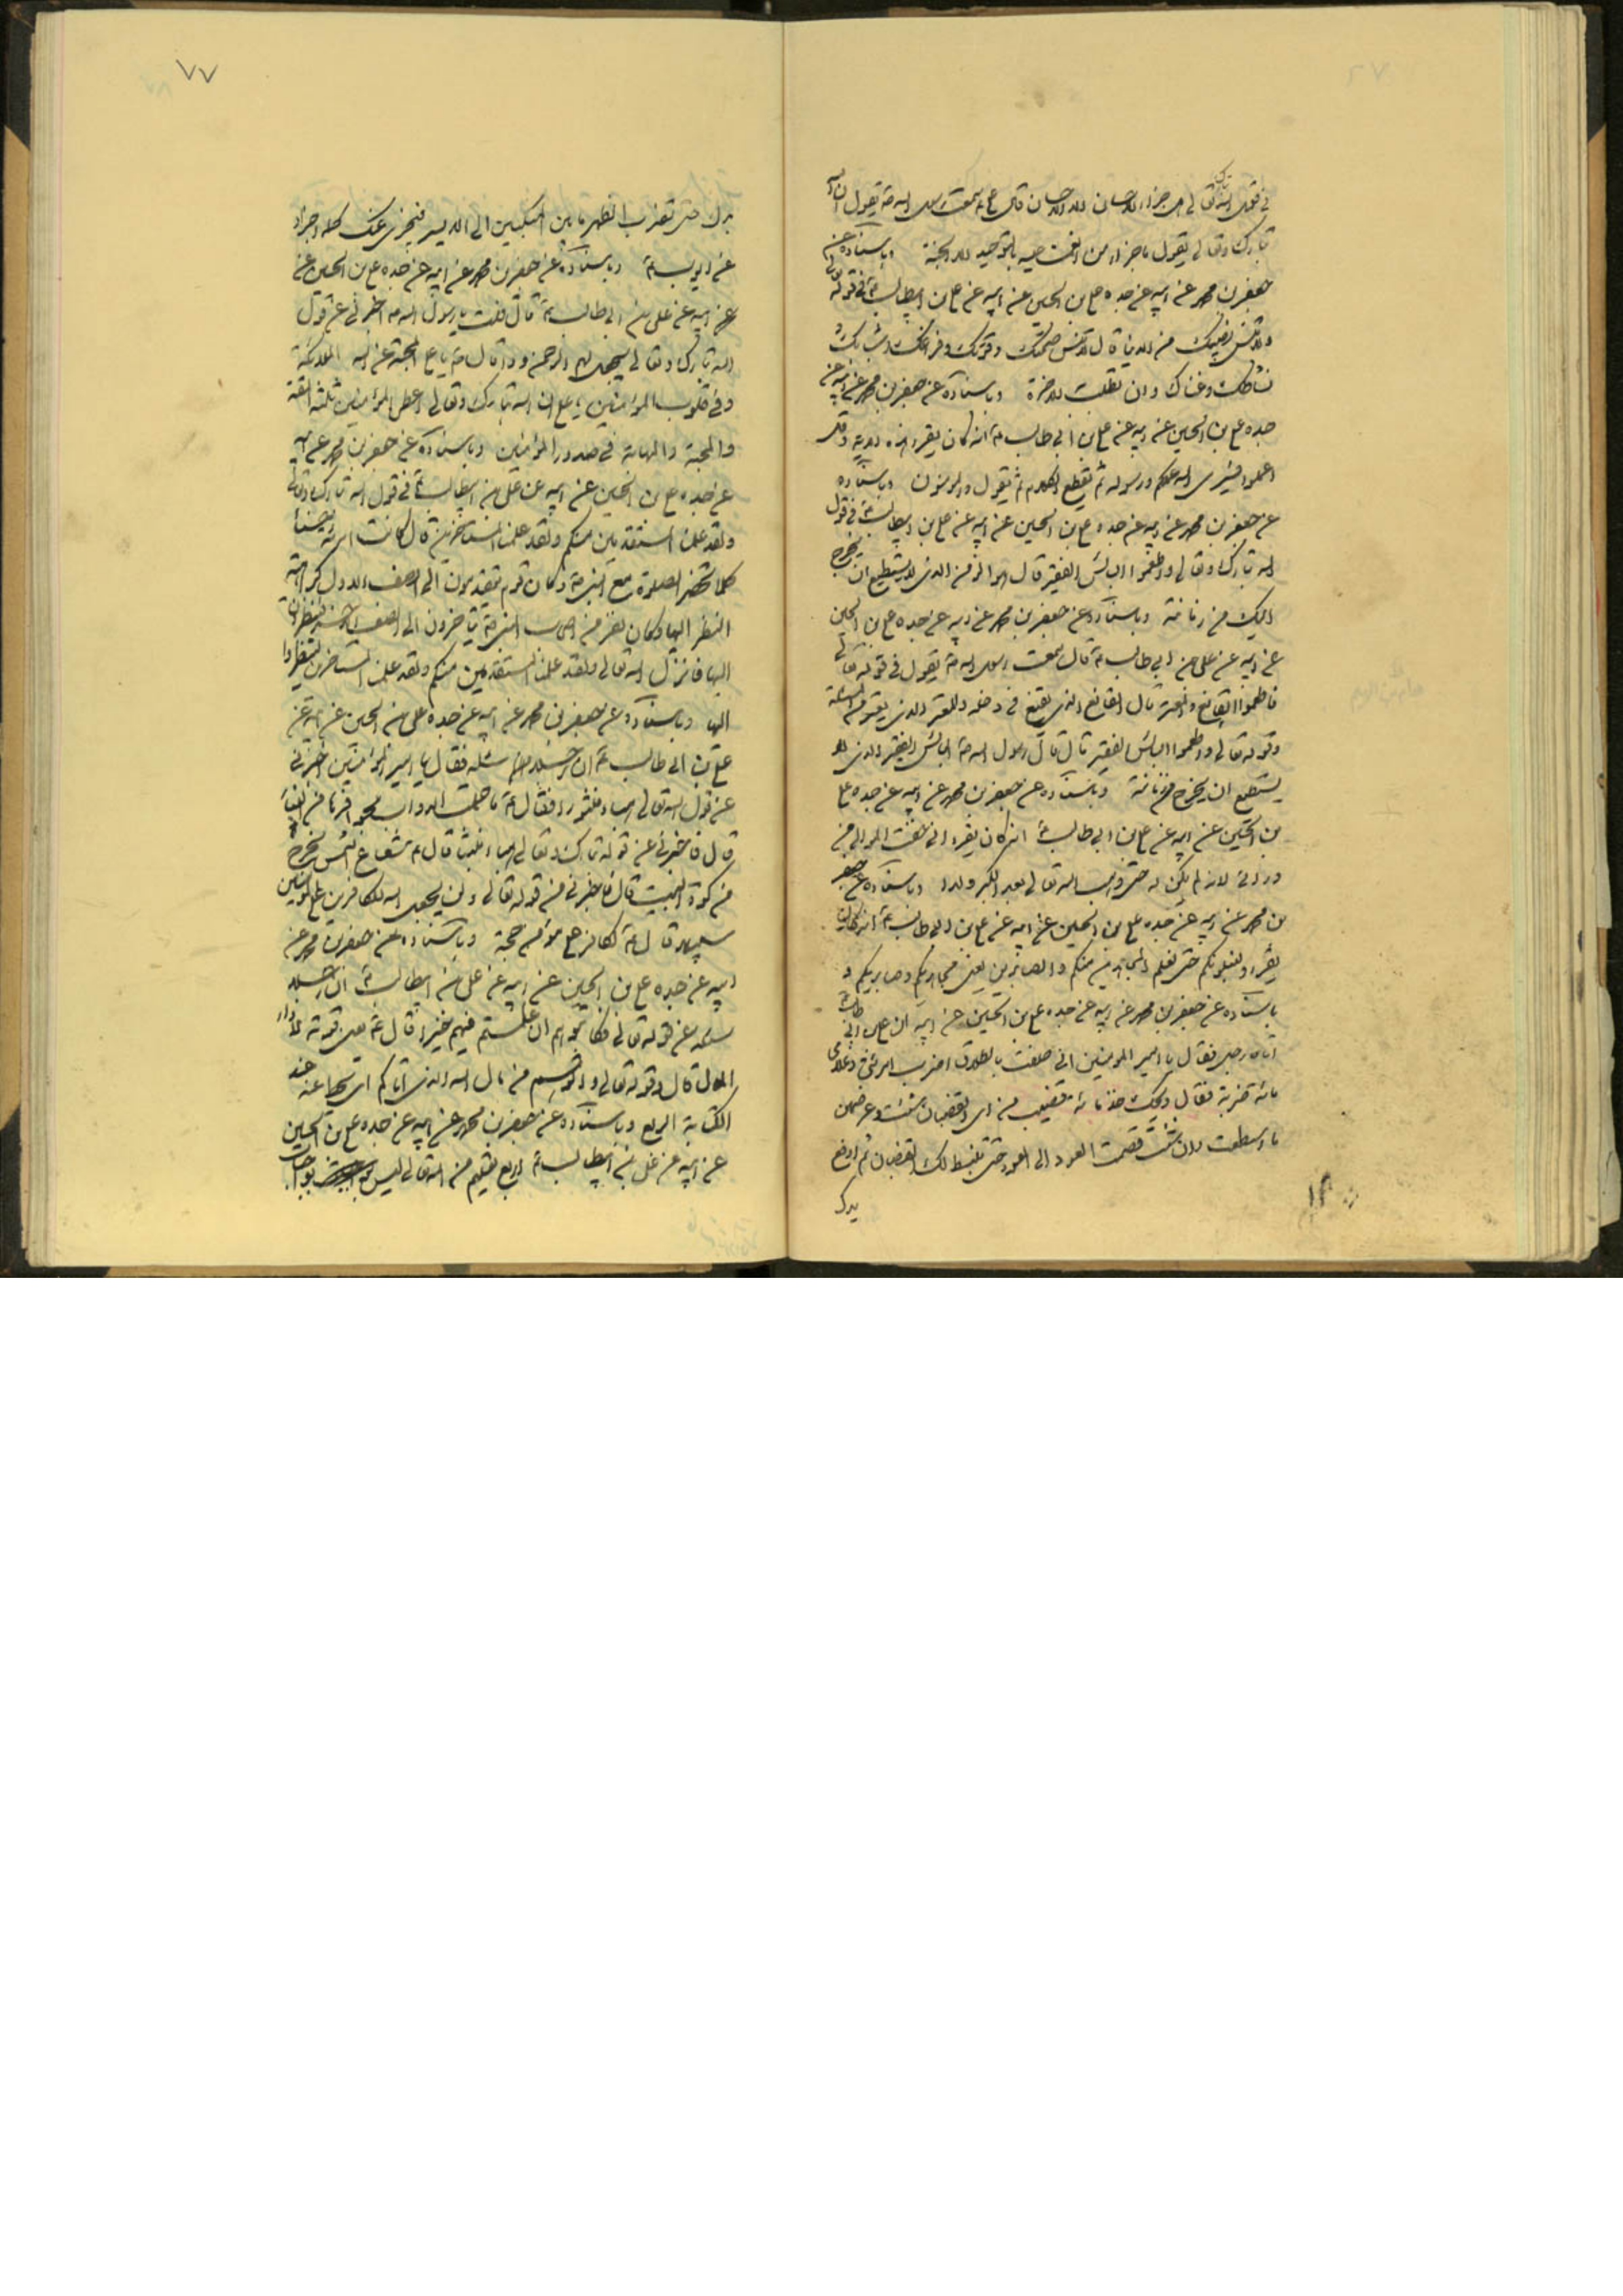 في قول الله تعالى هل جزاء الاحسان الا الاحسان قال علي ع سمعت رسول الله ص يقول ان الله
تبارك وتعالى يقول ما جزاء من انعمت عليه بالتوحيد الا الجنة وباسناده عن
جعفر بن محمد عن ابيه عن جده علي بن الحسين عن ابيه عن علي بن ابيطالب ع في قوله تعالى
ولا تنس نصيبك من الدنيا قال لا تنس صحتك وقوتك وفراغك وشبابك
نشاطك وغناك وان تطلب الاخرة وباسناده عن جعفر بن محمد عن ابيه عن
جده علي بن الحسين عن ابيه عن علي بن ابي طالب ع انه كان يقرء هذه الاية وقل
اعملوا فسيرى الله عملكم ورسوله ثم يقطع الكلام ثم يقول والمؤمنون وباسناده
عن جعفر بن محمد عن ابيه عن جده علي بن الحسين عن ابيه عن علي بن ابيطالب ع في قول
الله تبارك وتعالى واطعموا البائس الفقير قال هو الزمن الذي لا يستطيع ان يخرج
اليك من زمانته وباسناده عن جعفر بن محمد عن ابيه عن جده علي بن الحسين
عن ابيه عن علي بن ابي طالب ع قال سمعت رسول الله ص يقول في قوله تعالى
فاطعموا القانع والمعتر قال القانع الذي يقنع في دخله والمعتر الذي يعتر في المسئلة
وقوله تعالى واطعموا البائس الفقير قال قال رسول الله ص البائس الفقير الذي لا
يستطيع ان يخرج من زمانته وباسناده عن جعفر بن محمد عن ابيه عن جده علي
بن الحسين عن ابيه عن علي بن ابي طالب ع انه كان يقرء اني خفت الموالي من
ورائي لانه لم يكن له حتى وهب الله تعالى بعد الكبر ولدا وباسناده عن جعفر
بن محمد عن ابيه عن جده علي بن الحسين عن ابيه عن علي بن ابي طالب ع انه كان
يقرء ولنبلونكم حتى نعلم المجاهدين منكم والصابرين يعني مجاهديكم وصابريكم و
باسناده عن جعفر بن محمد عن ابيه عن جده علي بن الحسين عن ابيه ان علي بن ابي طالب ع
اتاه رجل فقال يا امير المؤمنين اني حلفت بالطلاق اضرب امرئتي وغلامي
مائة ضربة فقال ويحك خذ مائة قضيب من اي القضبان شئت وعرضهن
ما استطعت وان شئت قصمت العود الى العود حتى تغتبط لك القضبان ثم ارفع
يدك
٧٧
يدك حتى تضرب الظهر ما بين المنكبين الى الاليين فيجزي عنك كله واجزاء
عن ايوب ع وباسناده عن جعفر بن محمد عن ابيه عن جده علي بن الحسين عن
عن ابيه عن علي بن ابي طالب ع قال قلت يا رسول الله ص اخبرني عن قول
الله تبارك وتعالى سيجعل لهم الرحمن ودا قال ص يا علي المحبة عند الله الملائكة
وفي قلوب المؤمنين يا علي ان الله تبارك وتعالى اعطى المؤمنين ثلثة المقة
والمحبة والمهابة في صدور المؤمنين وباسناده عن جعفر بن محمد عن ابيه
عن جده علي بن الحسين عن ابيه عن علي بن ابيطالب ع في قول الله تبارك وتعالى
ولقد علمنا المستقدمين منكم ولقد علمنا المستاخرين قال كانت امرئة حسناء
كلما تحضر الصلوة مع النبي ص وكان قوم يتقدمون الى الصف الاول كراهة
النظر اليها وكان نفر من اصحاب النبي ص يتاخرون الى الصف الاخر لينظروا
اليها فانزل الله تعالى ولقد علمنا المستقدمين منكم ولقد علمنا المستاخرين لينظروا
اليها وباسناده عن جعفر بن محمد عن ابيه عن جده علي بن الحسين عن ابيه عن
علي بن ابي طالب ع ان رجلا سئله فقال يا امير المؤمنين اخبرني
عن قول الله تعالى هباء منثورا فقال ع ما حملت الدواب بحوافرها من الغبار
قال فاخبرني عن قوله تبارك وتعالى هباء منبثا قال ع شعاع الشمس يخرج
من كوة البيت قال فاخبرني من قوله تعالى ولن يجعل الله للكافرين على المؤمنين
سبيلا قال ع لكافر على مؤمن حجة وباسناده عن جعفر بن محمد عن
ابيه عن جده علي بن الحسين عن ابيه عن علي بن ابيطالب ع ان رجلا
سئله عن قوله تعالى فكاتبوهم ان علمتم فيهم خيرا قال ع يعني قوة لاداء
المال قال وقوله تعالى واتوهم من مال الله الذي آتاكم اي تحط عنه عند
الكتابة الربع وباسناده عن جعفر بن محمد عن ابيه عن جده علي بن الحسين
عن ابيه عن علي بن ابيطالب ع اربع تعليم من الله تعالى ليس بواجبات